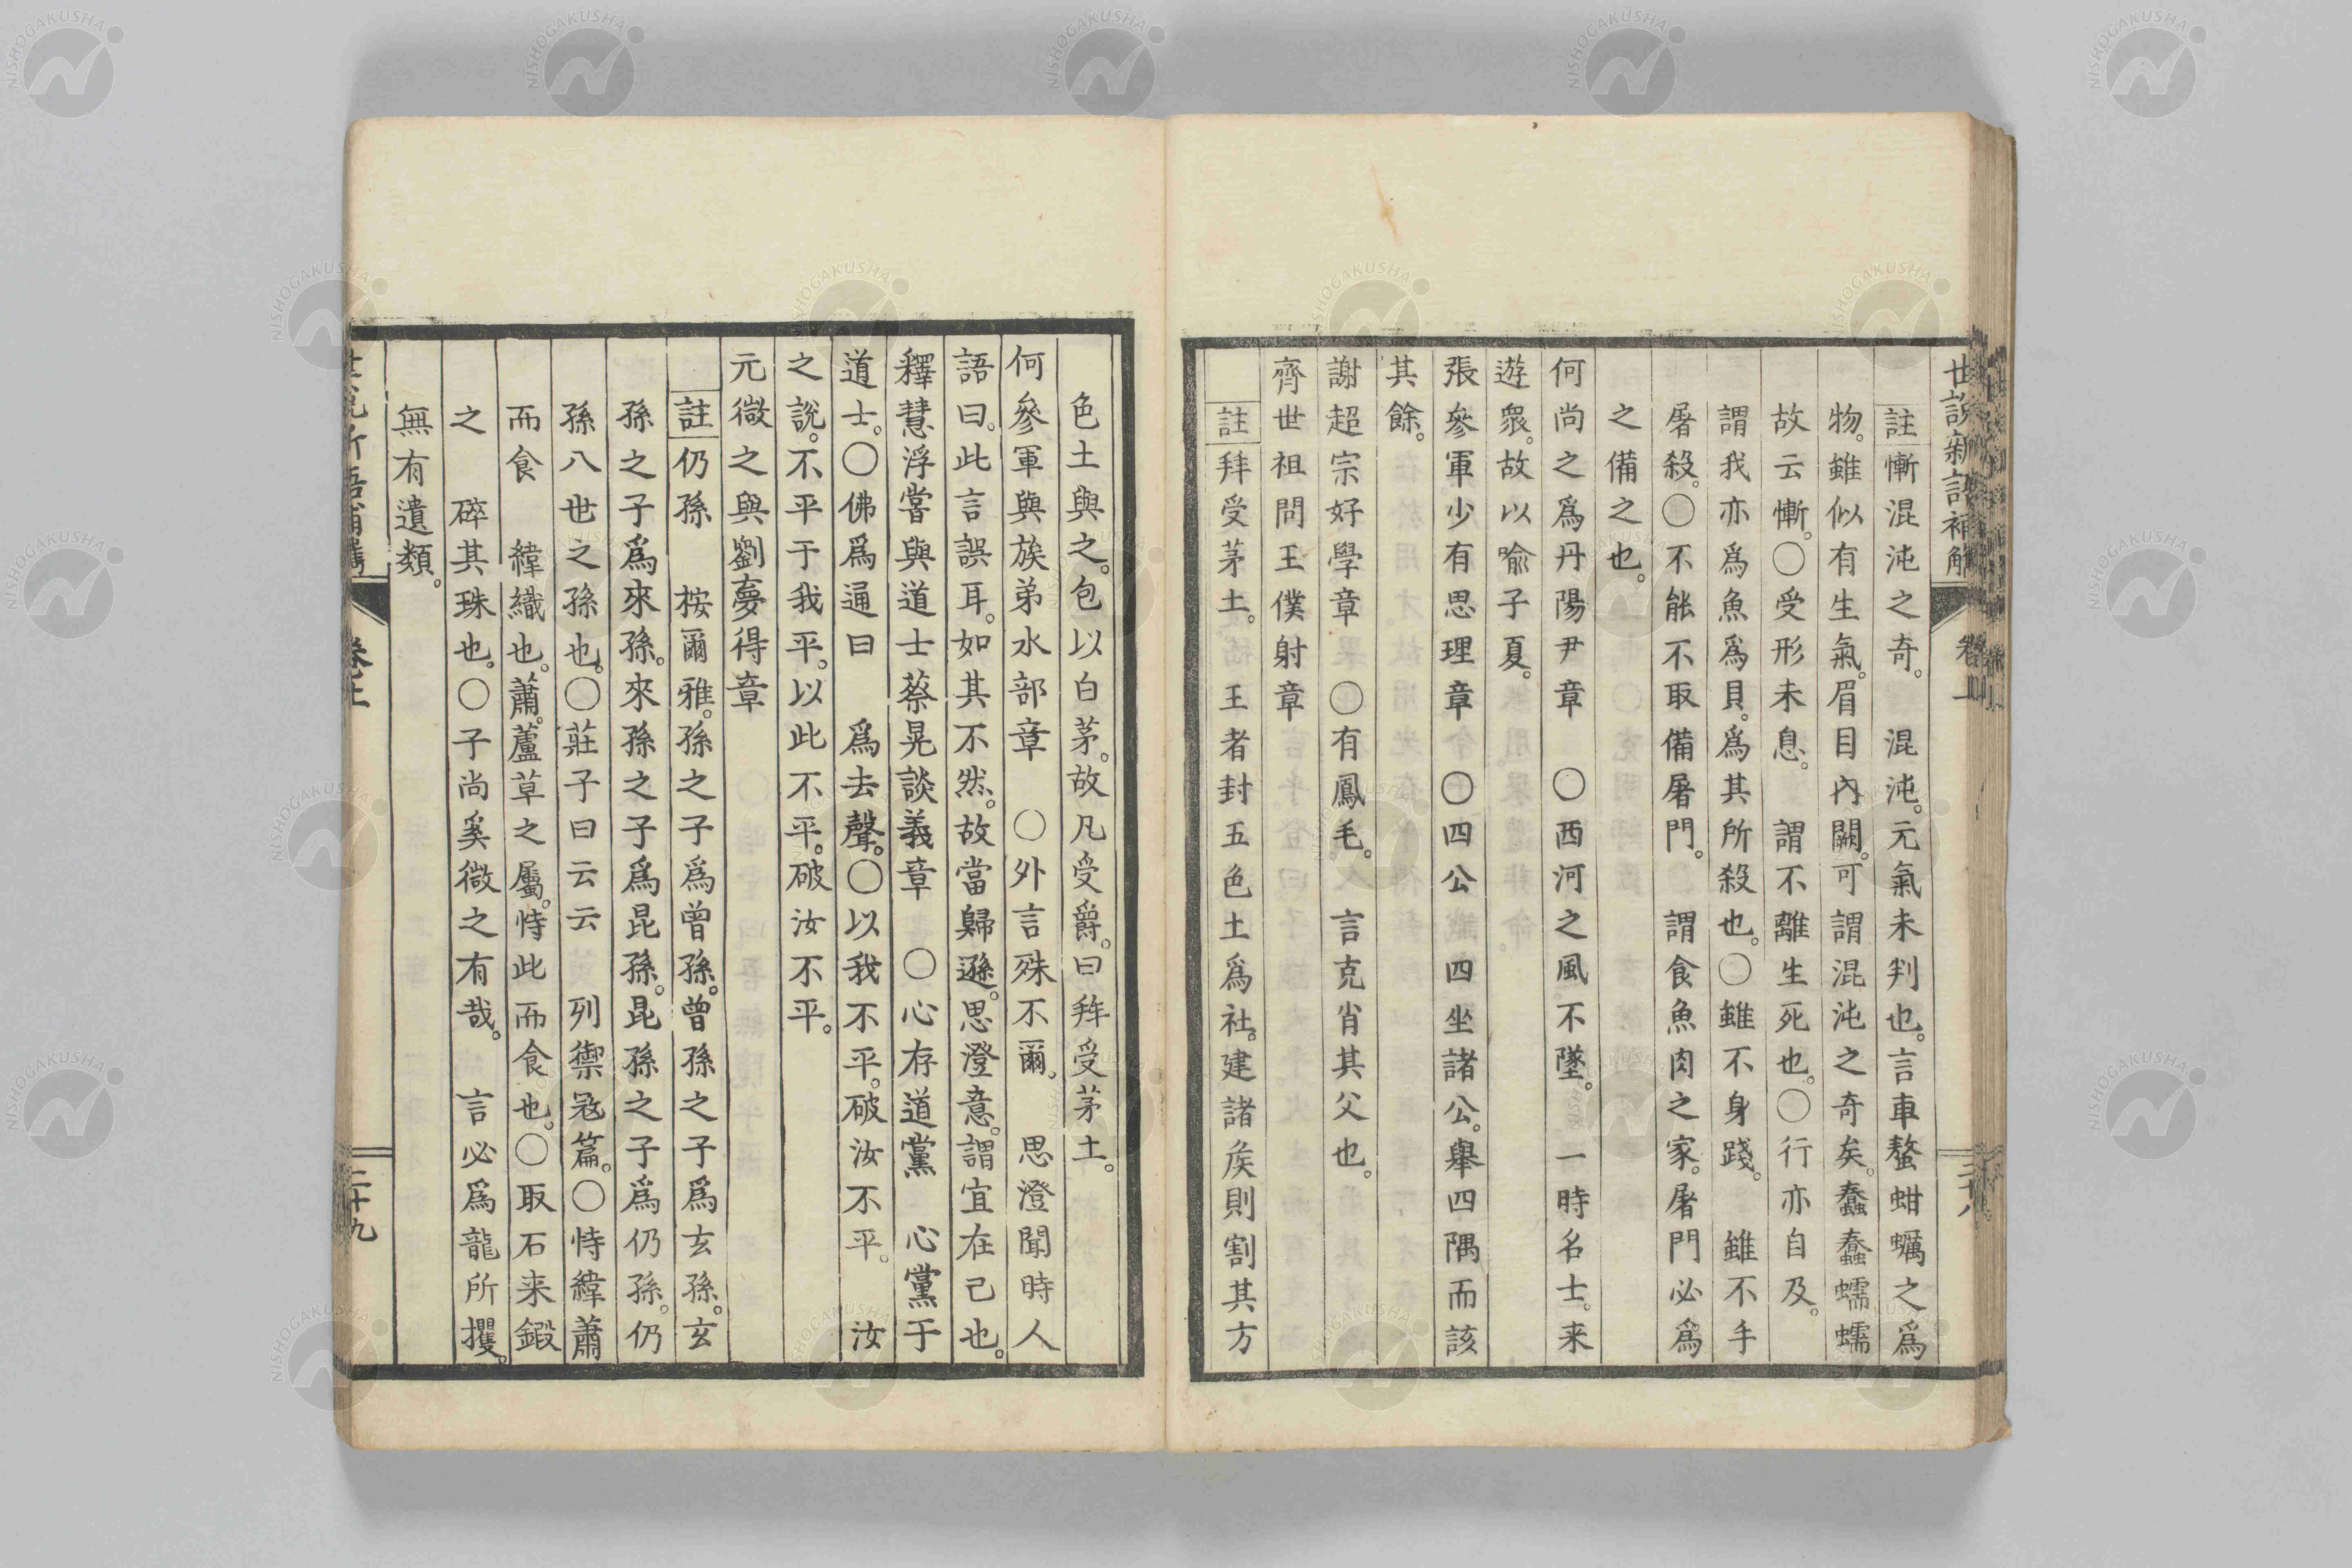 註慚混沌之奇。　混沌。元氣未判也。言車螯蚶蠣之爲
物。雖似有生氣。眉目內闕。可謂混沌之奇矣。蠢蠢蠕蠕
故云慚。○受形未息。　謂不離生死也。○行亦自及。
謂我亦爲魚爲貝。爲其所殺也。○雖不身踐。　雖不手
屠殺。○不能不取備屠門。　謂食魚肉之家。屠門必爲
之備之也。
何尚之爲丹陽尹章　○西河之風不墜。　一時名士。来
遊衆。故以喩子夏。
張參軍少有思理章　○四公　四坐諸公。舉四隅而該
其餘。
謝超宗好學章　○有鳳毛。　言克肖其父也。
齊世祖問王僕射章
註拜受茅土。　王者封五色土爲社。建諸矦則割其方
色土與之。包以白茅。故凡受爵。曰拜受茅土。
何參軍與族弟水部章　○外言殊不爾。　思澄聞時人
語曰。此言誤耳。如其不然。故當歸遜。思澄意。謂宜在己也。
釋慧浮嘗與道士蔡晃談義章　○心存道黨　心黨于
道士。○佛爲通曰　爲去聲。○以我不平。破汝不平。　汝
之說。不平于我平。以此不平。破汝不平。
元微之與劉夢得章
註仍孫　桉爾雅。孫之子爲曾孫。曾孫之子爲玄孫。玄
孫之子爲來孫。來孫之子爲昆孫。昆孫之子爲仍孫。仍
孫八世之孫也。○莊子曰云云　列禦冦篇。○恃緯蕭
而食　緯織也。蕭。蘆草之屬。恃此而食也。○取石来鍛
之　碎其珠也。○子尚奚微之有哉。　言必爲龍所攫。
無有遺類。
二十九